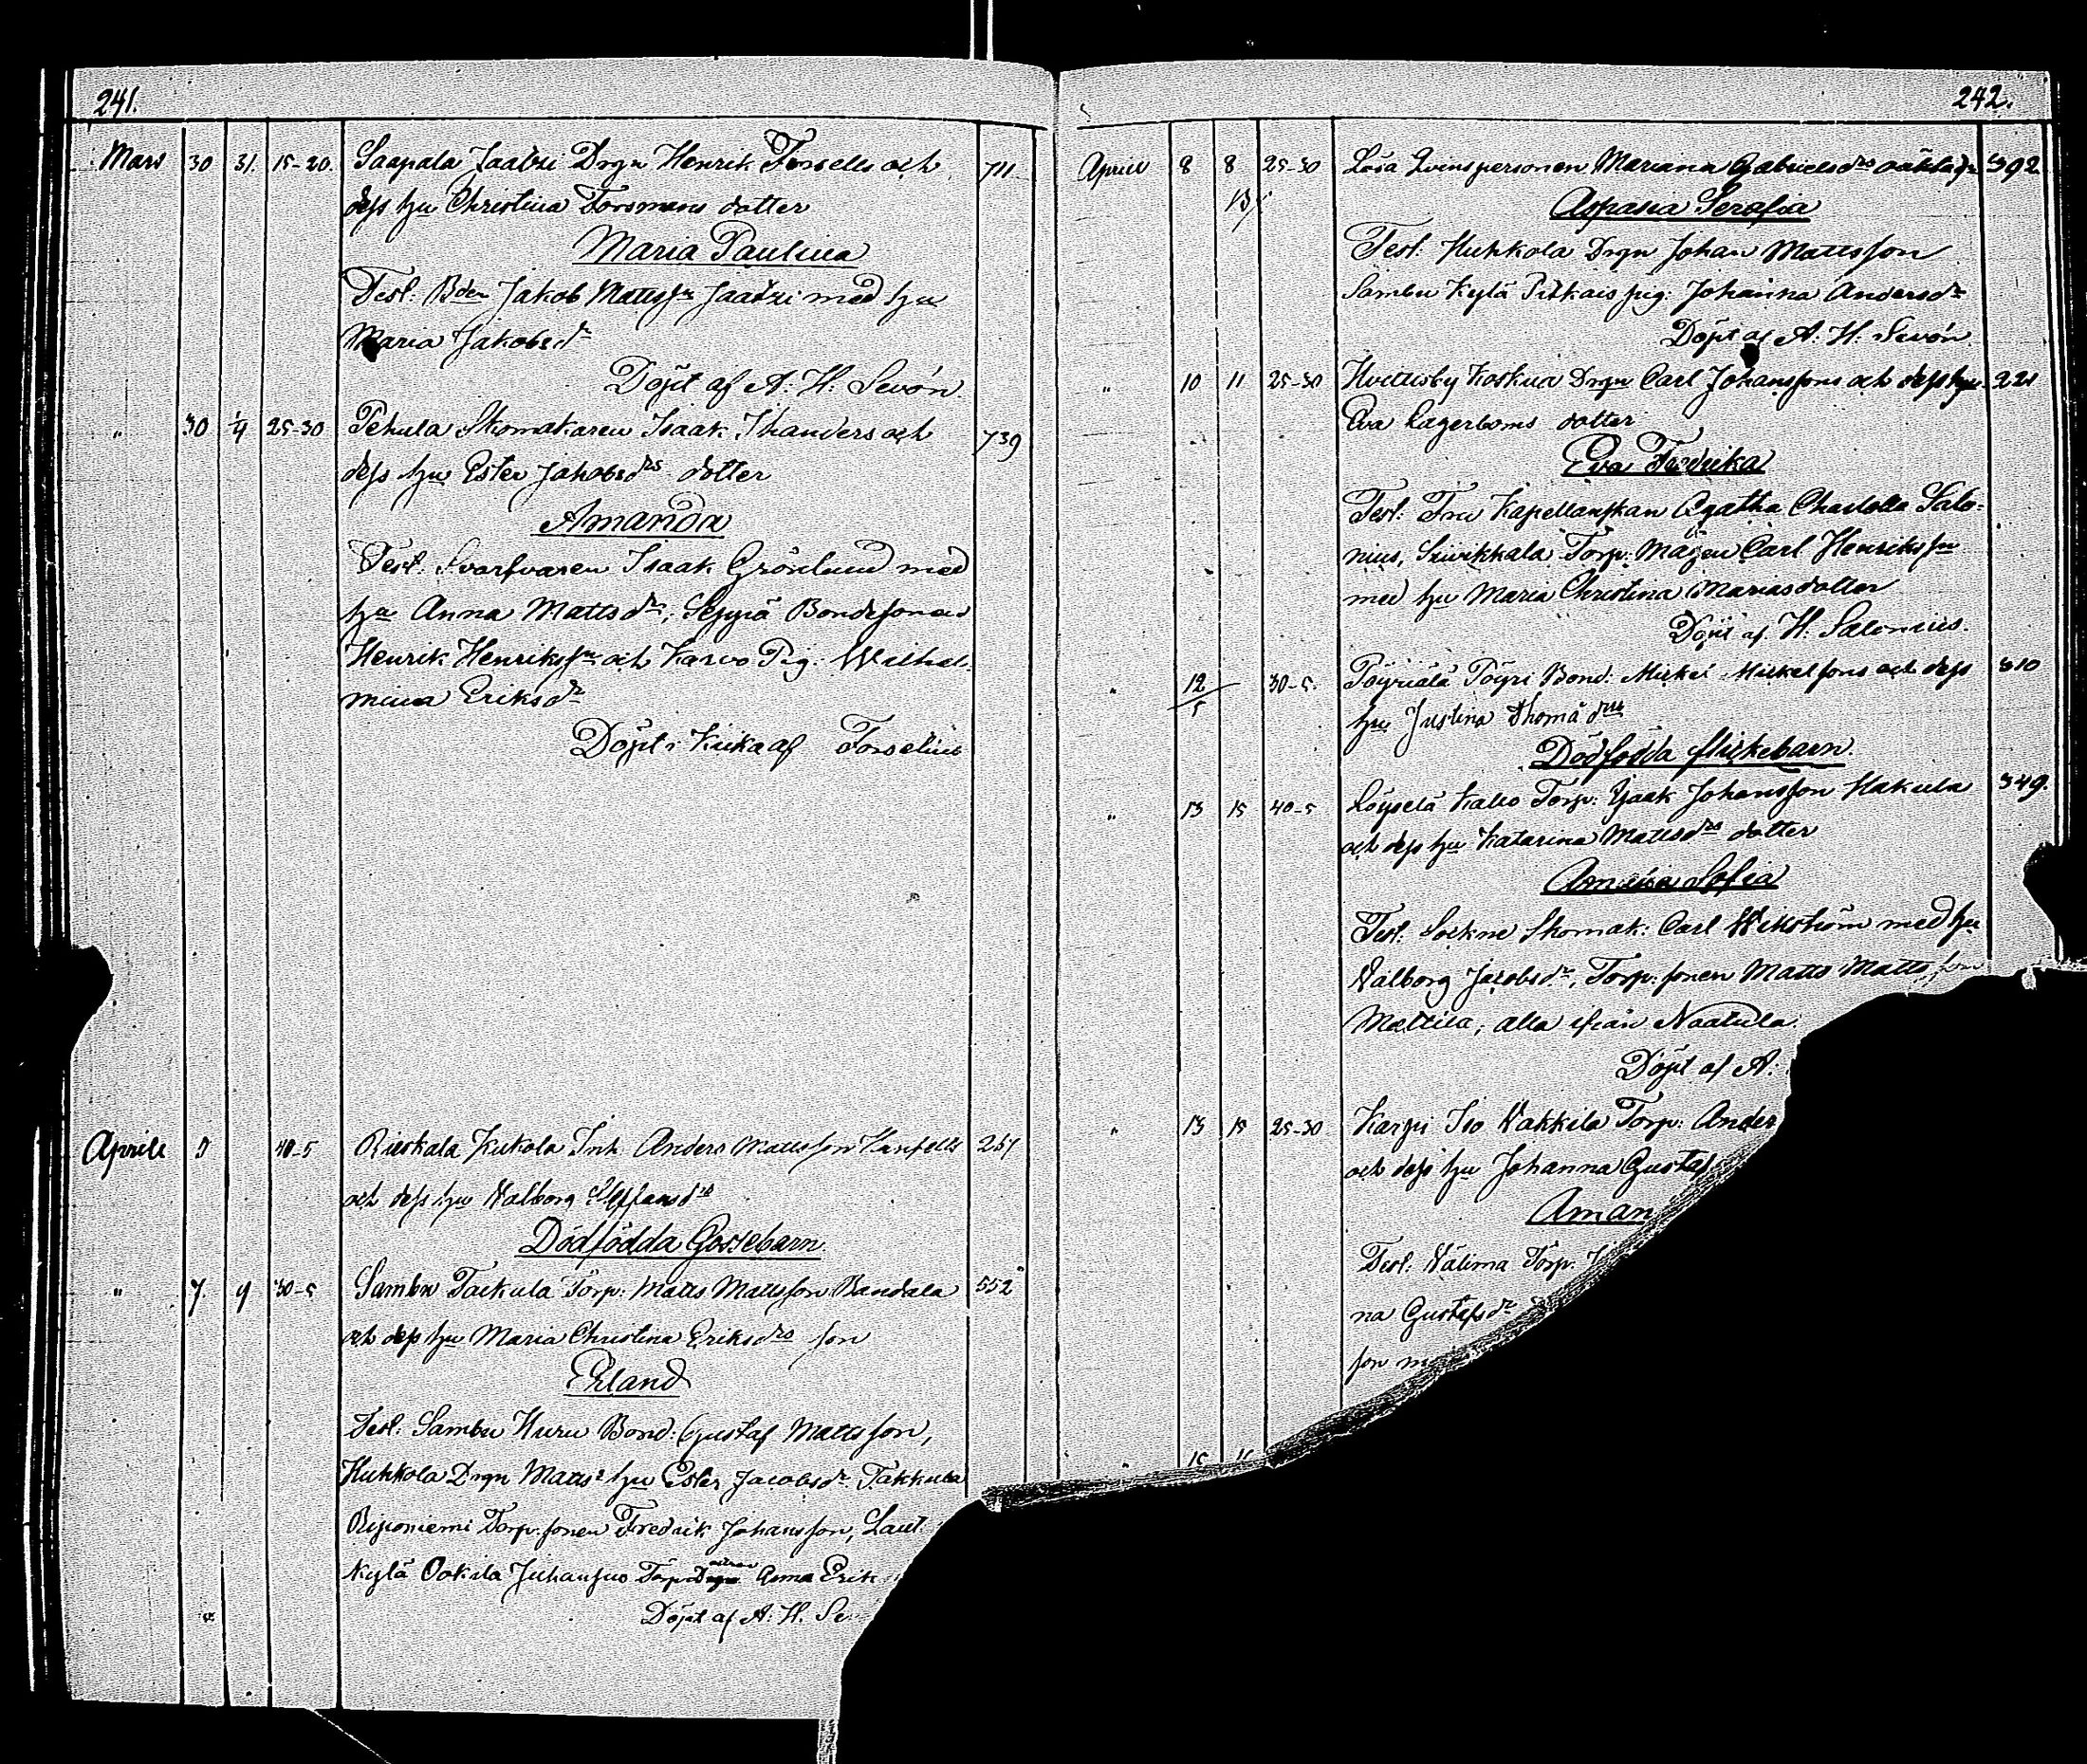 241.
Mars 30 31. 15-20. Saapala Jaatzi Drgn Henrik Forsells och 711
dess hu Christina Forsmans dotter
Maria Paulina
Test: Bden Jakob Mattssn Jaatzi med hu
Maria Jakobsdr
Döpt af A. H. Sevón.
" 30 1/4 25-30 Pehula Skomakaren Isaak Ihanders och 739
dess hu Ester Jakobsdrs dotter
Amanda
Test. Svarfvaren Isaak Grönlund med
hu Anna Mattsdr; Seppä Bondesonen
Henrik Henrikssn och Karvo Pig. Wilhel-
mina Eriksdr
Döpt i Kiikka af Forselius
Aprili 5 40-5 Rieskala Kukola Inh. Anders Mattsson
och dess hu Walborg
Dödfödda Gossebarn
" 7. 9 30-5 Sambu Taikula Torp: Matts Mattsson Randala 552
och dess hu Maria Christina Eriksdrs son
Erland
Test: Sambu Huru Bond: Gustaf Mattsson,
Huhkola Drgn Matts hu Ester Jacobsdr Takkula
Riponiemi Torp. sonen Fredrik Johansson, Saut
Kylä Ookila Juhansuo Torp Anna Erik
Döpt af A. H. Se
242.
Aprill 8 8 25-30 Lösa Qvinspersonen Mariana Gabrielsdrs oäkta dr 392
Aspasia Serafia
Test. Huhkola Drgn Johan Mattsson
Sambu Kylä Pitkais pig: Johanna Andersdr
Döpt af A. H. Sevón
" 10 11 25-30 Hvittisby Koskua Drgn Carl Johanssons och dess hu 221
Eva Lagerboms dotter
Eva Fredrika
Test: Fru Kapellanskan Agatha Charlotta Salo-
nius, Suvikkala Torp. Mågen Carl Henrikssn
med hu Maria Christina Mariasdotter
Döpt af H. Salonius.
" 12/5 30-5. Pöyriälä Pöyri Bond: Mickel Mickelsons och dess 310
hu Justina Thomädrs
Dödfödda flickebarn.
" 13 15 40-5 Löyselä Kalio Torp: Isaak Johansson Hakula 349.
och dess hu Katarina Mattsdrs dotter
Amalia Sofia
Test. Sockne Skomak: Carl Wikström med hu
Walborg Jacobsdr, Torp. sonen Matts Mattsson
Mattila, alla ifrån Naatula.
Döpt af A.
" 13 15 25-30 Karpi Iso Wakkila Torp: Ander
och dess hu Johanna Gustaf
Aman
Test. Wälima Torp.
na Gustafsdr
son m
" 15